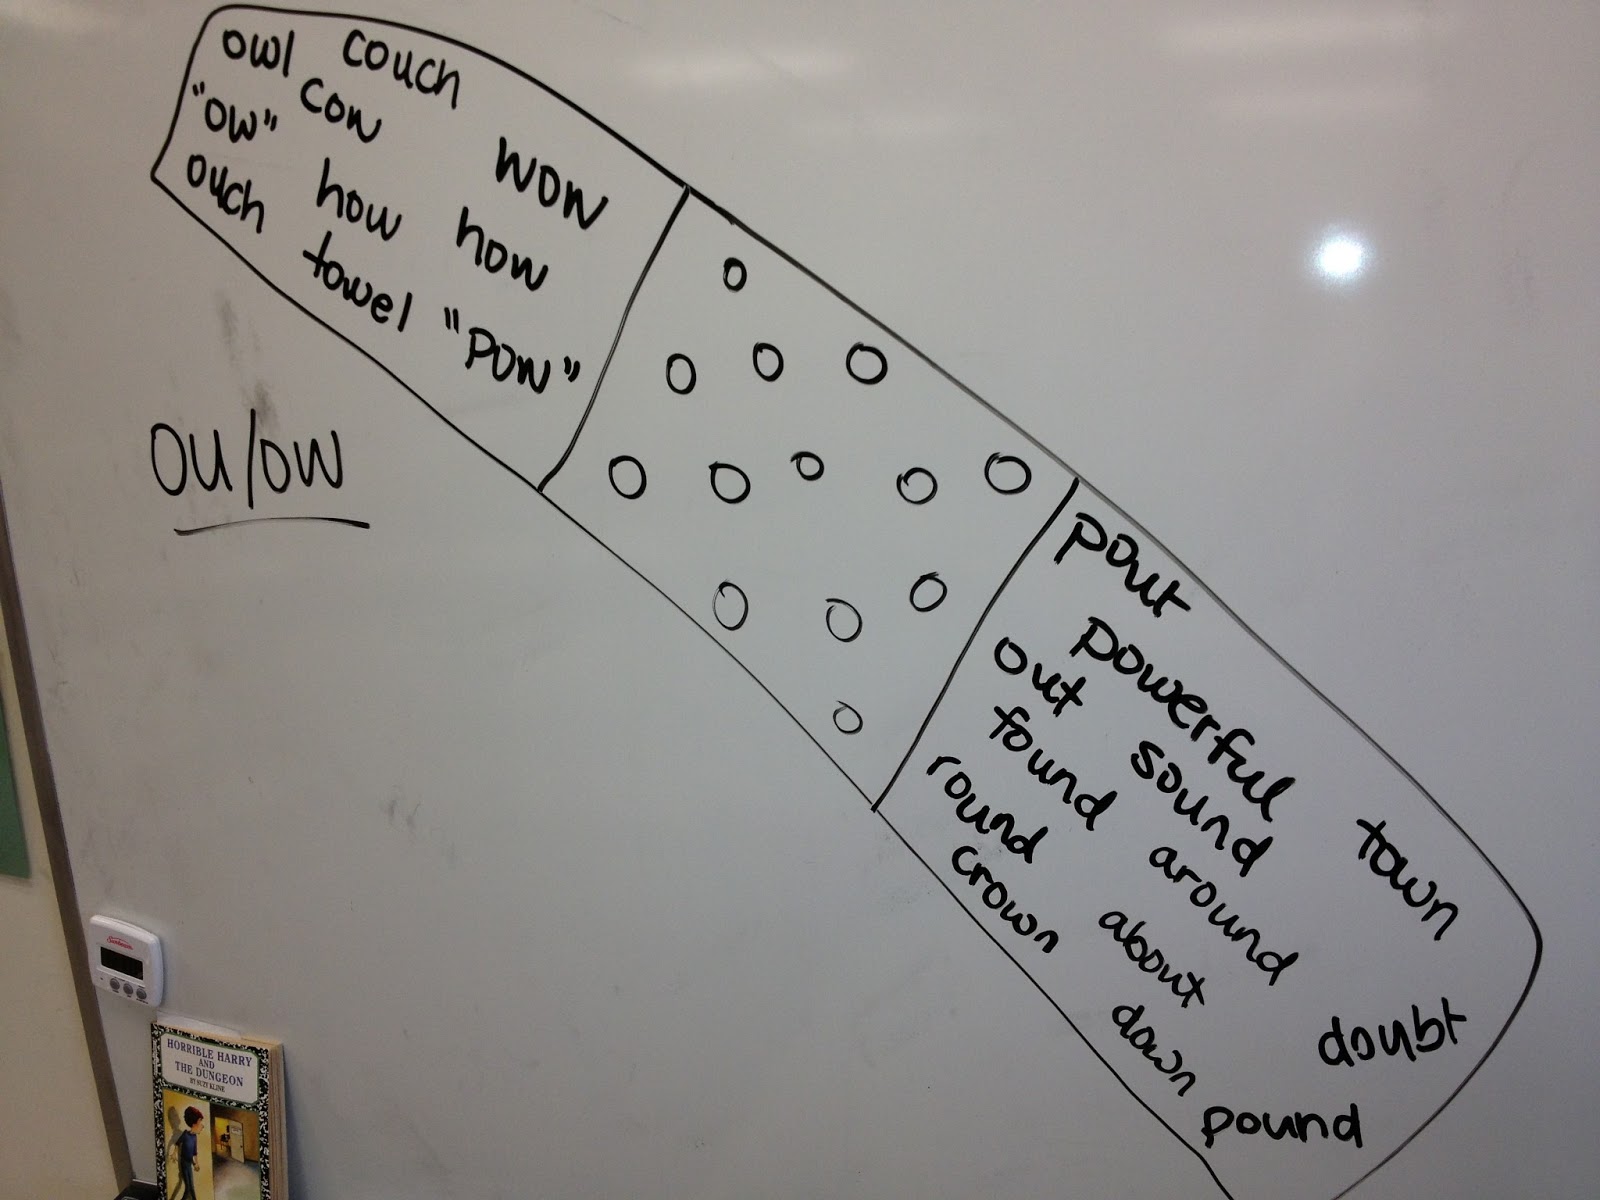 owl couch
"ow" cow wow
ouch how how
towel "pow"
ou/ow
pout
powerful town
out sound
found around doubt
round about
crown down
pound
Sunbeam
HORRIBLE HARRY
AND
THE DUNGEON
BY SUZY KLINE